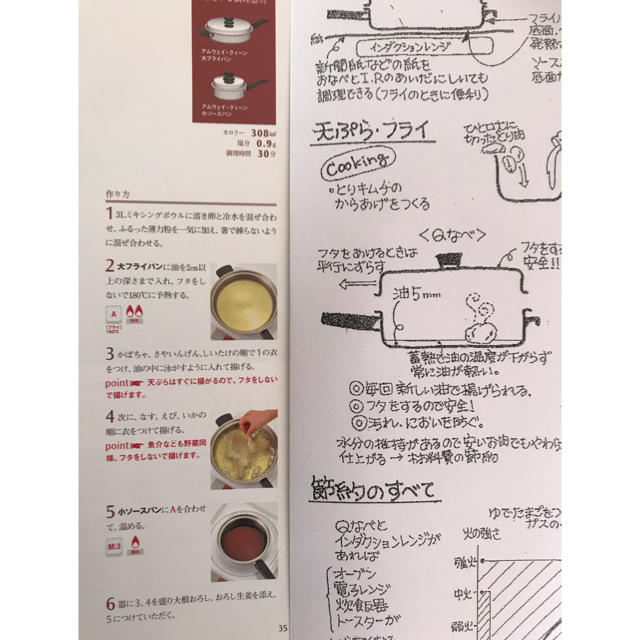 アムウェイ・クィーン
大フライパン
アムウェイ・クィーン
小ソースパン
カロリー 308kcal
塩分 0.9g
調理時間 30分
作り方
1 3Lミキシングボウルに溶き卵と冷水を混ぜ合わ
せ、ふるった薄力粉を一気に加え、箸で練らないよう
に混ぜ合わせる。
2 大フライパンに油を2cm以
上の深さまで入れ、フタをし
ないで180℃に予熱する。
A
[フライ]
180℃
3 かぼちゃ、さやいんげん、しいたけの順で1の衣
をつけ、油の中に泳がすように入れて揚げる。
point 天ぷらはすぐに揚がるので、フタをしない
で揚げます。
4 次に、なす、えび、いかの
順に衣をつけて揚げる。
point 魚介なども野菜同
様、フタをしないで揚げます。
5 小ソースパンにAを合わせ
て、温める。
M:3
6 器に3、4を盛り大根おろし、おろし生姜を添え、
5につけていただく。
35
紙
インダクションレンジ
新聞紙などの紙を
おなべとI.Rのあいだにしいても
調理できる(フライのときに便利)
フライパ
底面・
発熱
ソース
底面か
天ぷら・フライ
Cooking
・とりキムチの
からあげをつくる
ひと口大に
切ったとり肉
<Qなべ>
フタをあけるときは
平行にずらす
フタをする
安全!!
油5mm
蓄熱で油の温度が下がらず
常に油が熱い。
◎毎回新しい油で揚げられる。
◎フタをするので安全!
◎汚れ、においを防ぐ。
水分の維持があるので安いお肉でもやわら
仕上がる→材料費の節約
節約のすべて
Qなべと
インダクションレンジが
あれば
オーブン
電子レンジ
炊飯器
トースターが
ゆでたまごをつ
ガスの
火の強さ
強火
中火
弱火